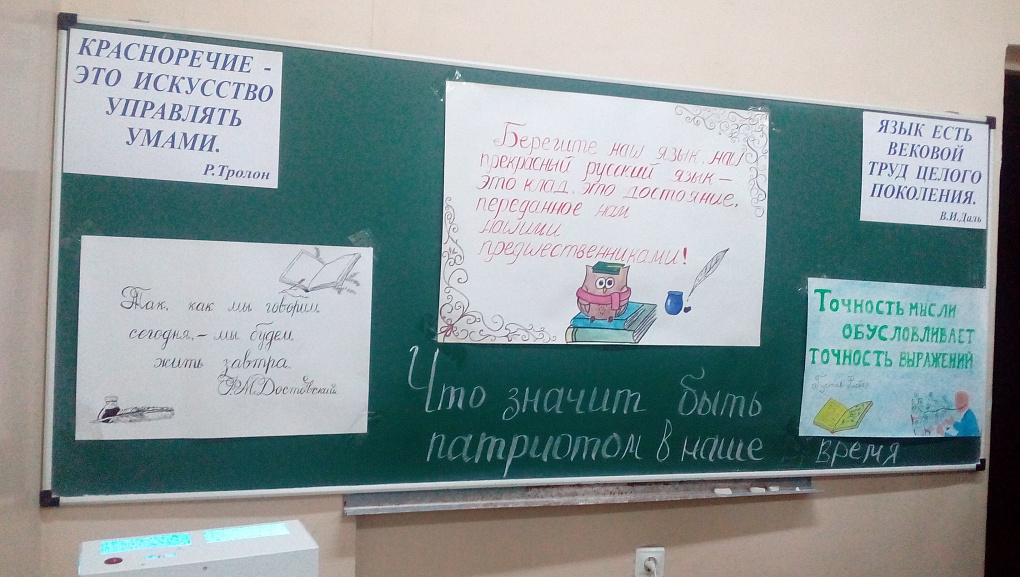 КРАСНОРЕЧИЕ -
ЭТО ИСКУССТВО
УПРАВЛЯТЬ
УМАМИ.
Р.Тролон
Так, как мы говорим
сегодня,- мы будем
жить завтра.
Ф.М.Достовский
Берегите наш язык, наш
прекрасный русский язык –
это клад, это достояние,
переданное нам
нашими
предшественниками!
ЯЗЫК ЕСТЬ
ВЕКОВОЙ
ТРУД ЦЕЛОГО
ПОКОЛЕНИЯ.
В.И.Даль
Точность мысли
обусловливает
точность выражений
Гюстав Флобер
Что значит быть
патриотом в наше время